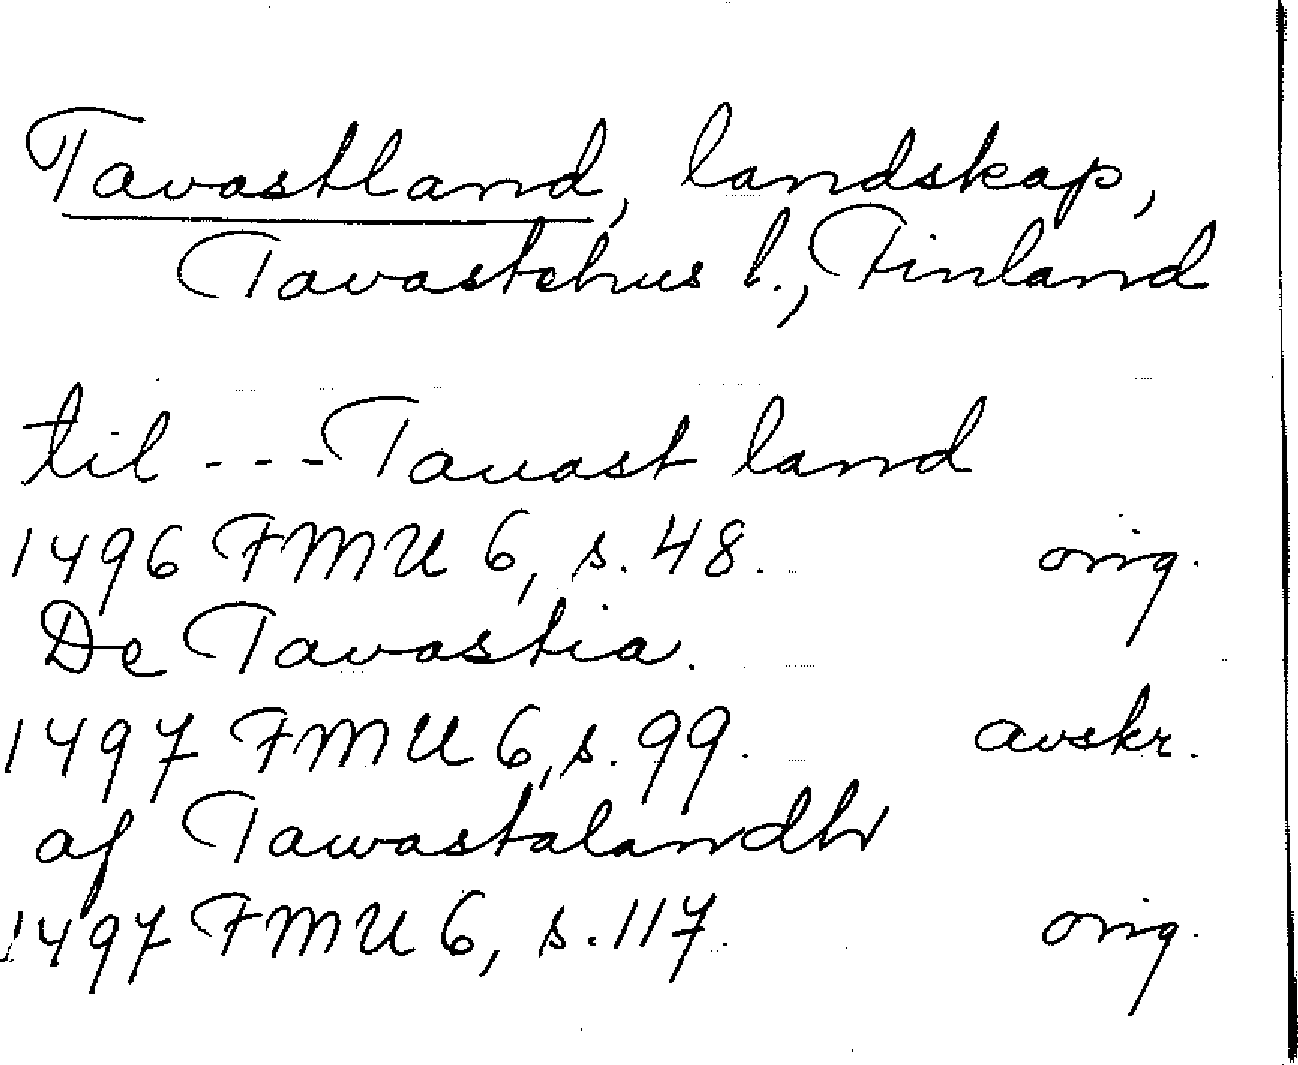 Tavastland, landskap,
Tavastehus l., Finland
til --- Tauast land
1496 FMU 6, s. 48. orig.
De Tavastia.
1497 FMU 6, s. 99. avskr.
af Tawastalandh
1497 FMU 6, s. 117. orig.